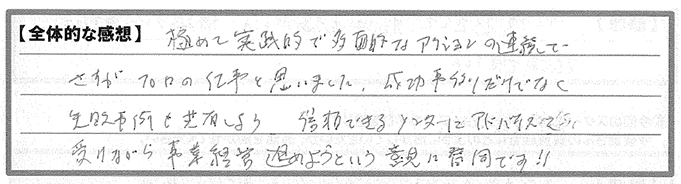 【全体的な感想】 極めて実践的で多面的なアクションの連続で
さすがプロの仕事と思いました。成功事例だけでなく
失敗事例も共有しよう 信頼できるメンターにアドバイスを
受けながら事業経営進めようという意見に賛同です!!